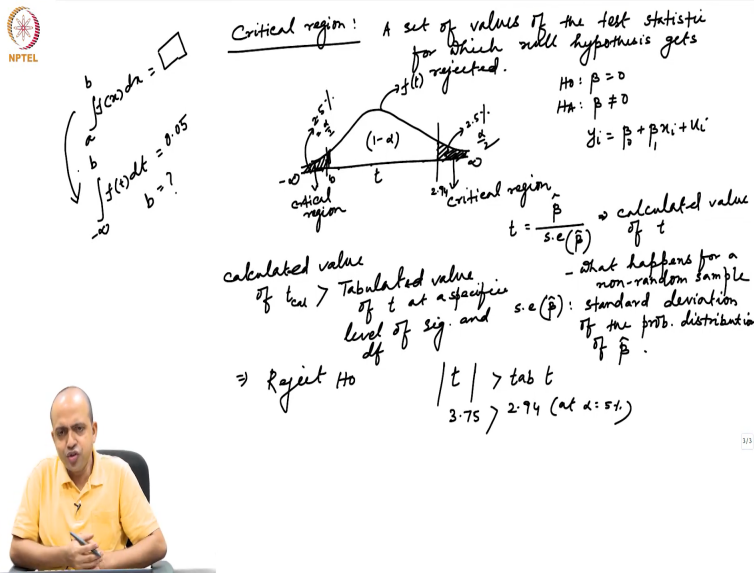 NPTEL
Critical region: A set of values of the test statistic
for which null hypothesis gets
rejected.
H0: β = 0
HA: β ≠ 0
yi = β0 + β1 xi + ui
b
∫ f(x) dx = □
a
b
∫ f(t) dt = 0.05
-∞
b = ?
f(t)
2.5%
= α/2
(1-α)
2.5%
α/2
-∞
b
t
2.94
∞
critical
region
critical region
t = β̂ / s.e(β̂) ⇒ calculated value
of t
- What happens for a
non-random sample
s.e(β̂): standard deviation
of the prob. distribution
of β̂.
calculated value
of tcal > Tabulated value
of t at a specific
level of sig. and
df
⇒ Reject H0
|t| > tab t
3.75 > 2.94 (at α=5%)
3/3